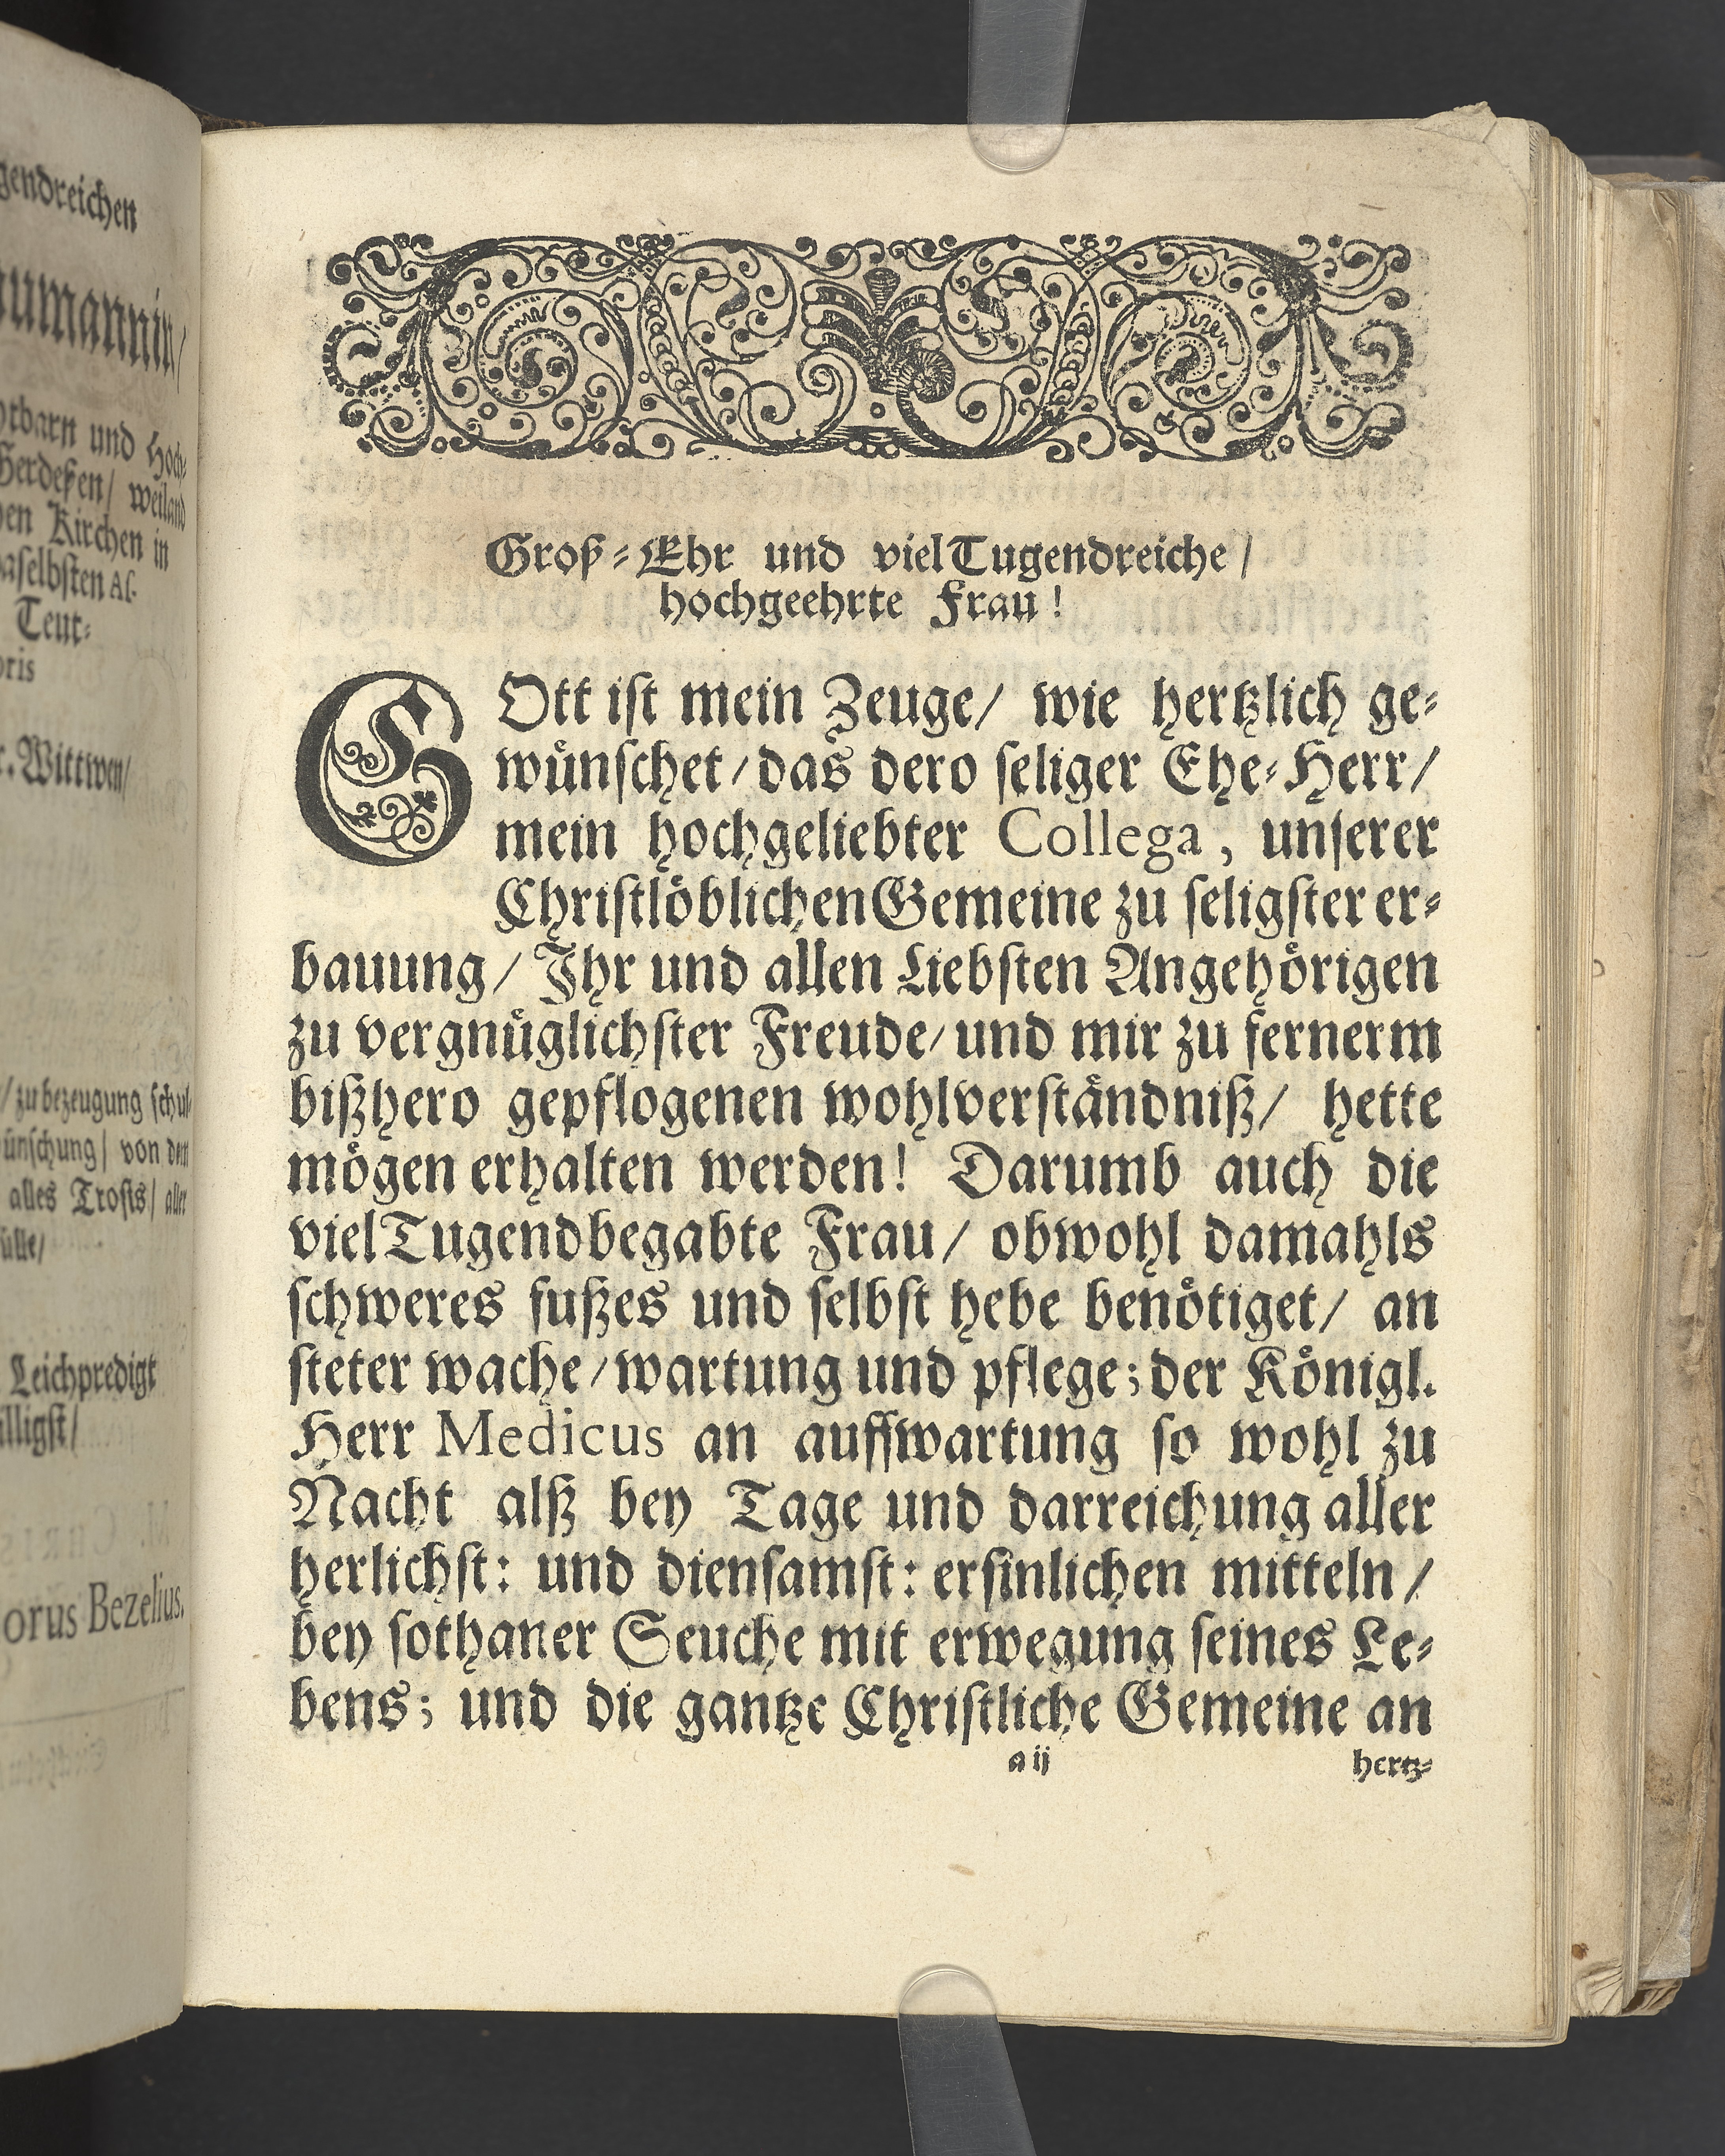 gendreichen
umannin/
htbarn und Hoch-
Herdeßen/ weiland
en Kirchen in
daselbsten As-
Teut-
oris
r. Wittwen/
/ zu bezeugung schul-
ünschung/ von dem
alles Trosts/ aller
ülle/
Leichpredigt
illigst/
orus Bezelius.
Groß-Ehr und viel Tugendreiche/
hochgeehrte Frau!
GOtt ist mein Zeuge/ wie hertzlich ge-
wünschet/ das dero seliger Ehe-Herr/
mein hochgeliebter Collega, unserer
Christlöblichen Gemeine zu seligster er-
bauung/ Ihr und allen Liebsten Angehörigen
zu vergnüglichster Freude/ und mir zu fernerm
bißhero gepflogenen wohlverständniß/ hette
mögen erhalten werden! Darumb auch die
viel Tugendbegabte Frau/ obwohl damahls
schweres fußes und selbst hebe benötiget/ an
steter wache/ wartung und pflege; der Königl.
Herr Medicus an auffwartung so wohl zu
Nacht alß bey Tage und darreichung aller
herlichst: und diensamst: ersinlichen mitteln/
bey sothaner Seuche mit erwegung seines Le-
bens; und die gantze Christliche Gemeine an
a ij
hertz-